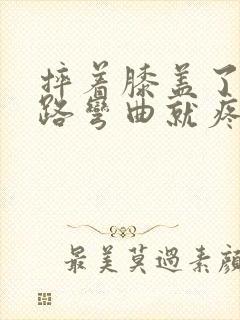 摔着膝盖了
路彎曲就疼
最美莫過素顔